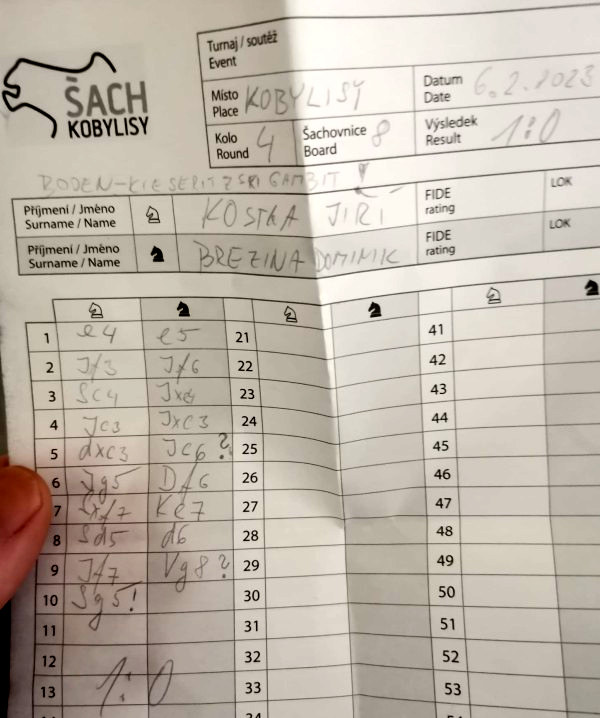 ŠACH
KOBYLISY
Turnaj / soutěž
Event
Místo
Place KOBYLISY
Datum
Date 6.2.2023
Kolo
Round 4
Šachovnice
Board 8
Výsledek
Result 1:0
BODEN-KIESERITZSKI GAMBIT!
Příjmení / Jméno
Surname / Name KOSTKA JIŘÍ
FIDE
rating
LOK
Příjmení / Jméno
Surname / Name BREZINA DOMINIK
FIDE
rating
LOK
1 e4 e5 21 41
2 Jf3 Jf6 22 42
3 Sc4 Jxe4 23 43
4 Jc3 Jxc3 24 44
5 dxc3 Jc6? 25 45
6 Jg5 Df6 26 46
7 Sxf7 Ke7 27 47
8 Sd5 d6 28 48
9 Jf7 Vg8? 29 49
10 Sg5! 30 50
11 31 51
12 32 52
13 1:0 33 53